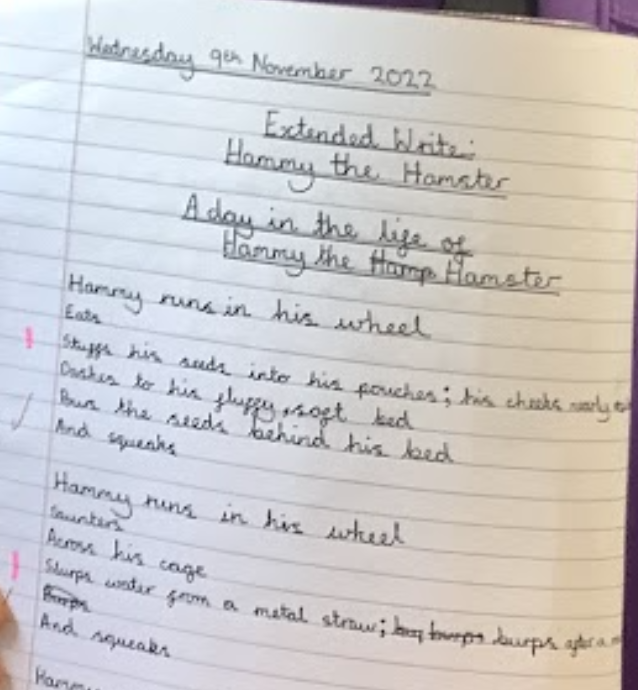 Wednesday 9th November 2022
Extended Write:
Hammy the Hamster
A day in the life of
Hammy the Hamp Hamster
Hammy runs in his wheel
Eats
Stuffs his seeds into his pouches; his cheeks nearly
Dashes to his fluffy, soft bed
the seeds behind his bed
And squeaks
Hammy runs in his wheel
Saunters
Across his cage
Slurps water from a metal straw; burps after a
Burps
And squeaks
Hammy